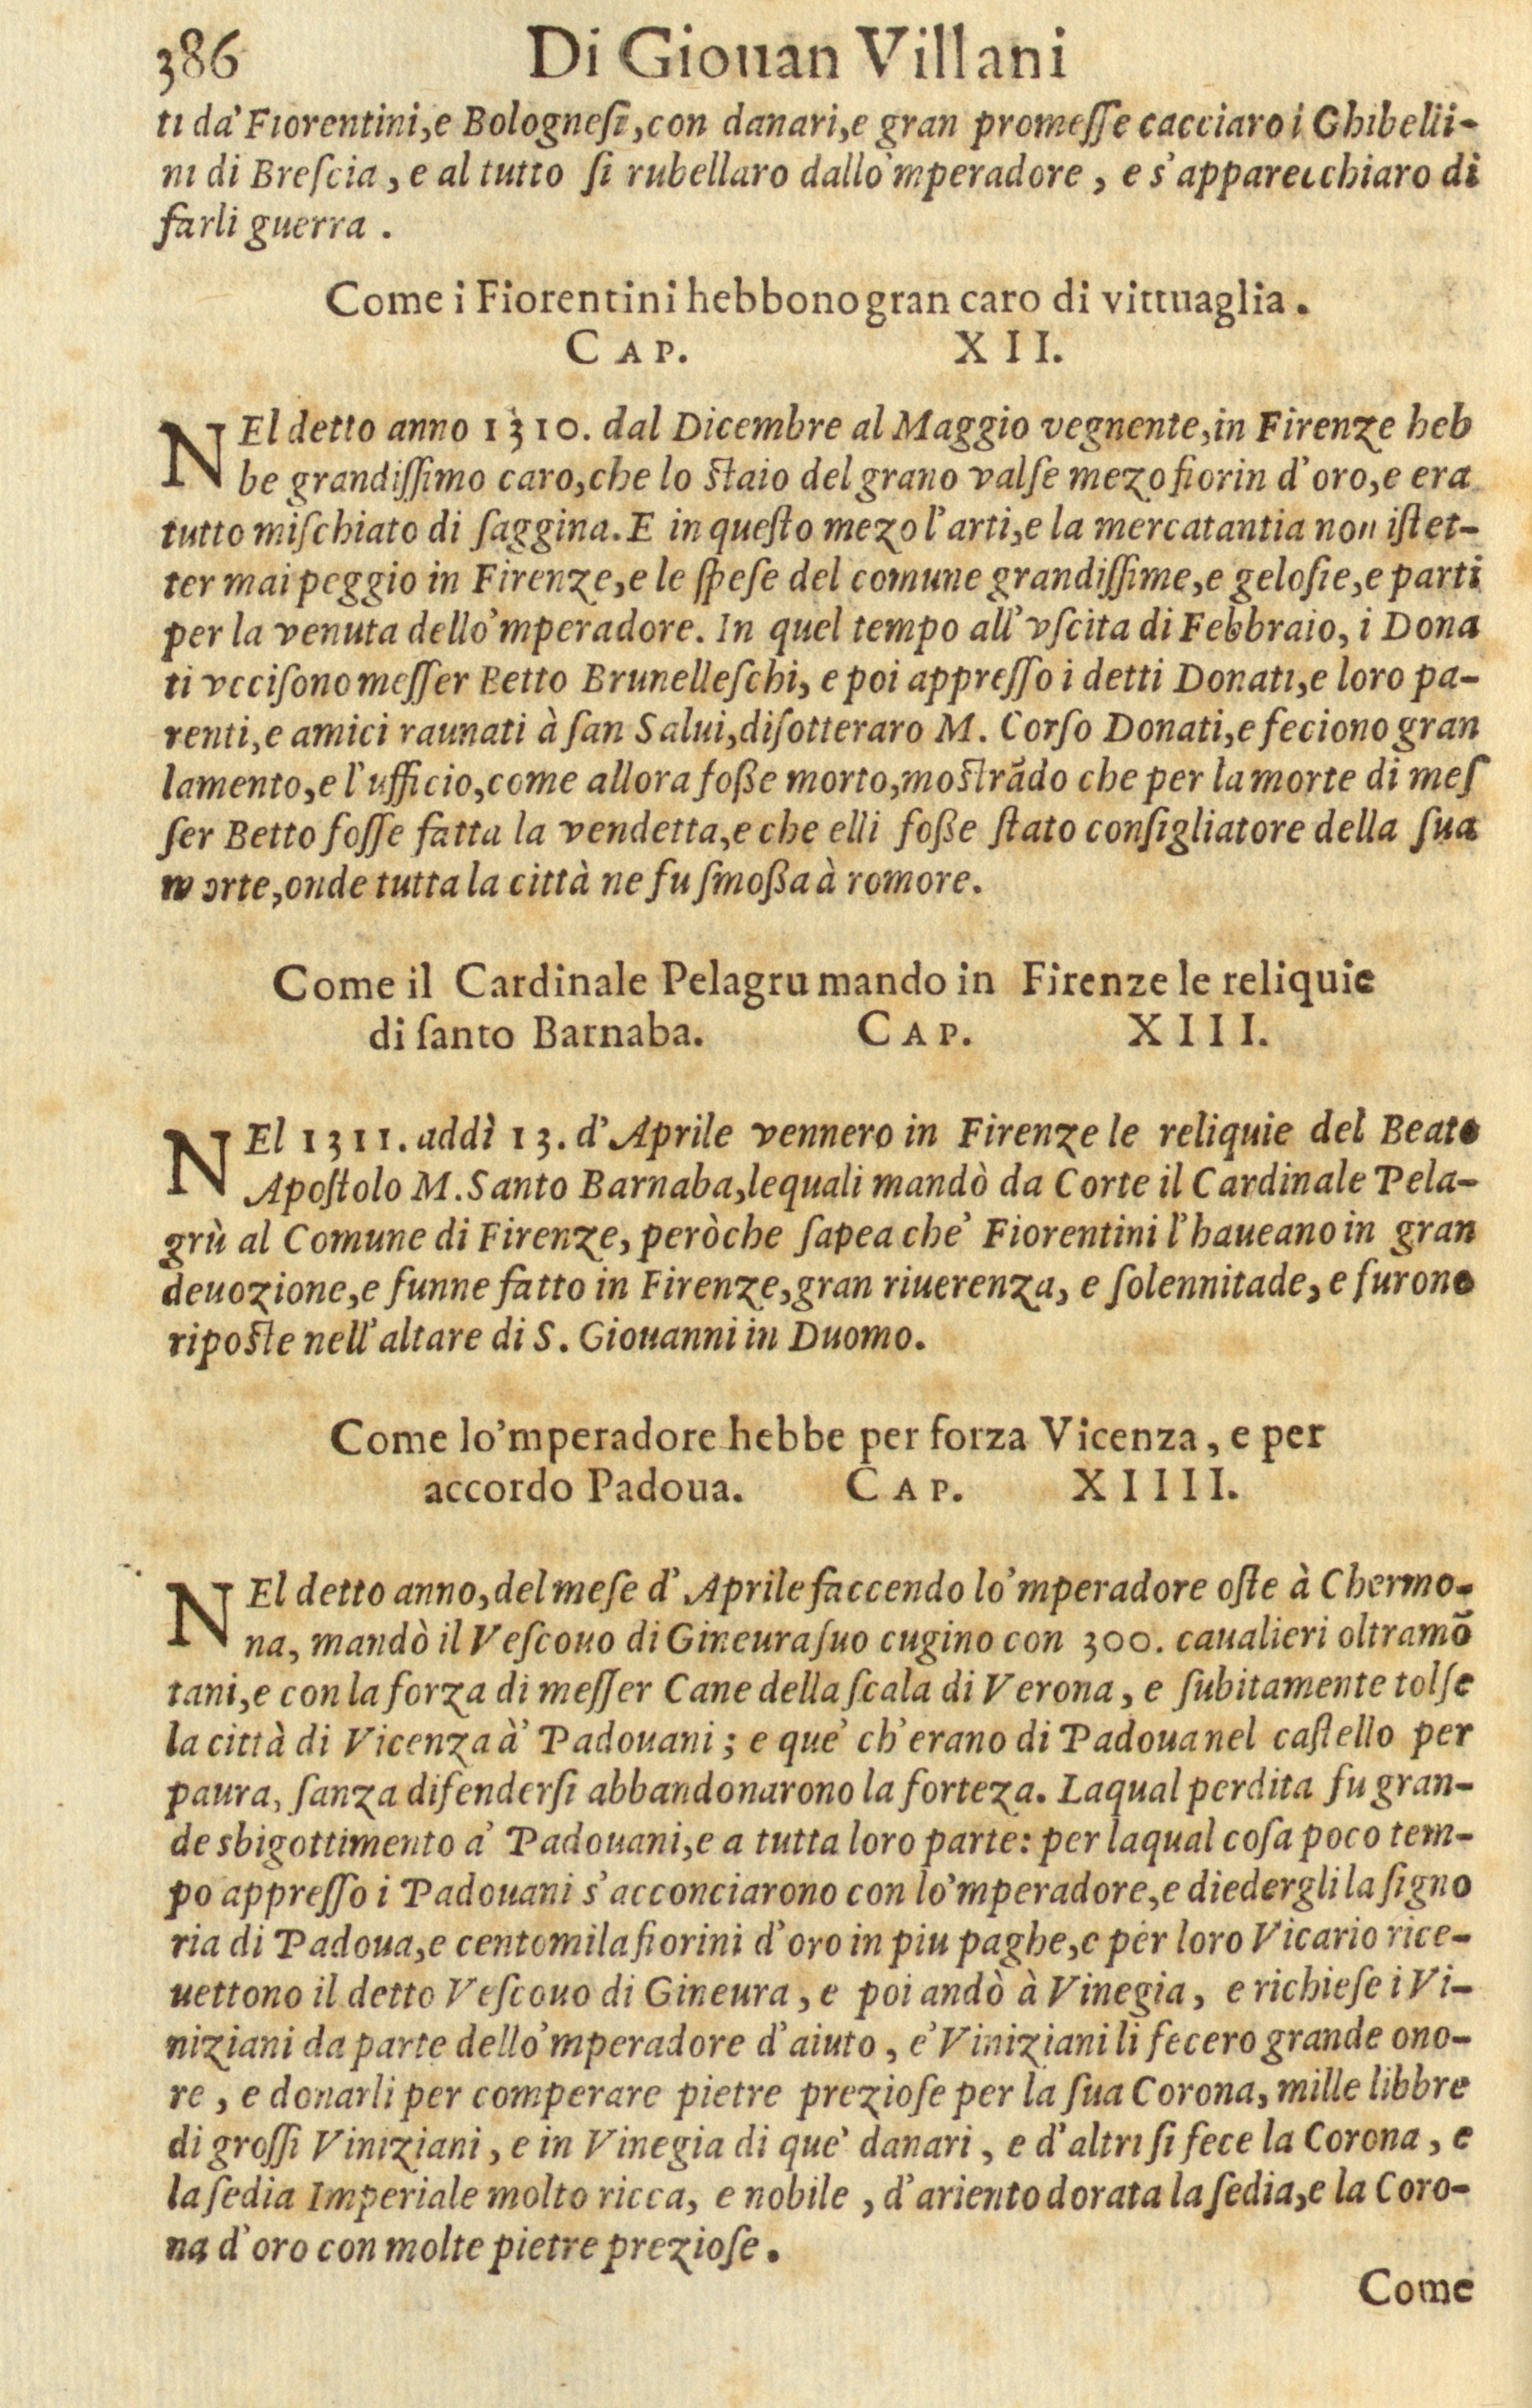 386 Di Giouan Villani
ti da' Fiorentini, e Bolognesi, con danari, e gran promeſſe cacciaro i Ghibelli-
ni di Breſcia, e al tutto ſi rubellaro dallo 'mperadore, e s'apparecchiaro di
farli guerra.
Come i Fiorentini hebbono gran caro di vittuaglia.
CAP. XII.
NEl detto anno 1310. dal Dicembre al Maggio vegnente, in Firenze heb
be grandiſſimo caro, che lo ſtaio del grano valſe mezo fiorin d'oro, e era
tutto miſchiato di ſaggina. E in queſto mezo l'arti, e la mercatantia non iſtet-
ter mai peggio in Firenze, e le ſpeſe del comune grandiſſime, e geloſie, e parti
per la venuta dello 'mperadore. In quel tempo all'vſcita di Febbraio, i Dona
ti vcciſono meſſer Betto Brunelleſchi, e poi appreſſo i detti Donati, e loro pa-
renti, e amici raunati à ſan Salui, diſotteraro M. Corſo Donati, e feciono gran
lamento, e l'ufficio, come allora foße morto, moſtrãdo che per la morte di meſ
ſer Betto foſſe fatta la vendetta, e che elli foße ſtato conſigliatore della ſua
morte, onde tutta la città ne fu ſmoßa à romore.
Come il Cardinale Pelagru mando in Firenze le reliquie
di ſanto Barnaba. CAP. XIII.
NEl 1311. addì 13. d'Aprile vennero in Firenze le reliquie del Beato
Apoſtolo M. Santo Barnaba, lequali mandò da Corte il Cardinale Pela-
grù al Comune di Firenze, peròche ſapea che' Fiorentini l'haueano in gran
deuozione, e funne fatto in Firenze, gran riuerenza, e ſolennitade, e furono
ripoſte nell'altare di S. Giouanni in Duomo.
Come lo 'mperadore hebbe per forza Vicenza, e per
accordo Padoua. CAP. XIIII.
NEl detto anno, del meſe d'Aprile faccendo lo 'mperadore oſte à Chermo-
na, mandò il Veſcouo di Gineura ſuo cugino con 300. caualieri oltramõ
tani, e con la forza di meſſer Cane della ſcala di Verona, e ſubitamente tolſe
la città di Vicenza à' Padouani; e que' ch'erano di Padoua nel caſtello per
paura, ſanza difenderſi abbandonarono la forteza. Laqual perdita fu gran-
de sbigottimento a' Padouani, e a tutta loro parte: per laqual coſa poco tem-
po appreſſo i Padouani s'acconciarono con lo 'mperadore, e diedergli la ſigno
ria di Padoua, e centomila fiorini d'oro in piu paghe, e per loro Vicario rice-
uettono il detto Veſcouo di Gineura, e poi andò à Vinegia, e richieſe i Vi-
niziani da parte dello 'mperadore d'aiuto, e' Viniziani li fecero grande ono-
re, e donarli per comperare pietre prezioſe per la ſua Corona, mille libbre
di groſſi Viniziani, e in Vinegia di que' danari, e d'altri ſi fece la Corona, e
la ſedia Imperiale molto ricca, e nobile, d'ariento dorata la ſedia, e la Coro-
na d'oro con molte pietre prezioſe.
Come